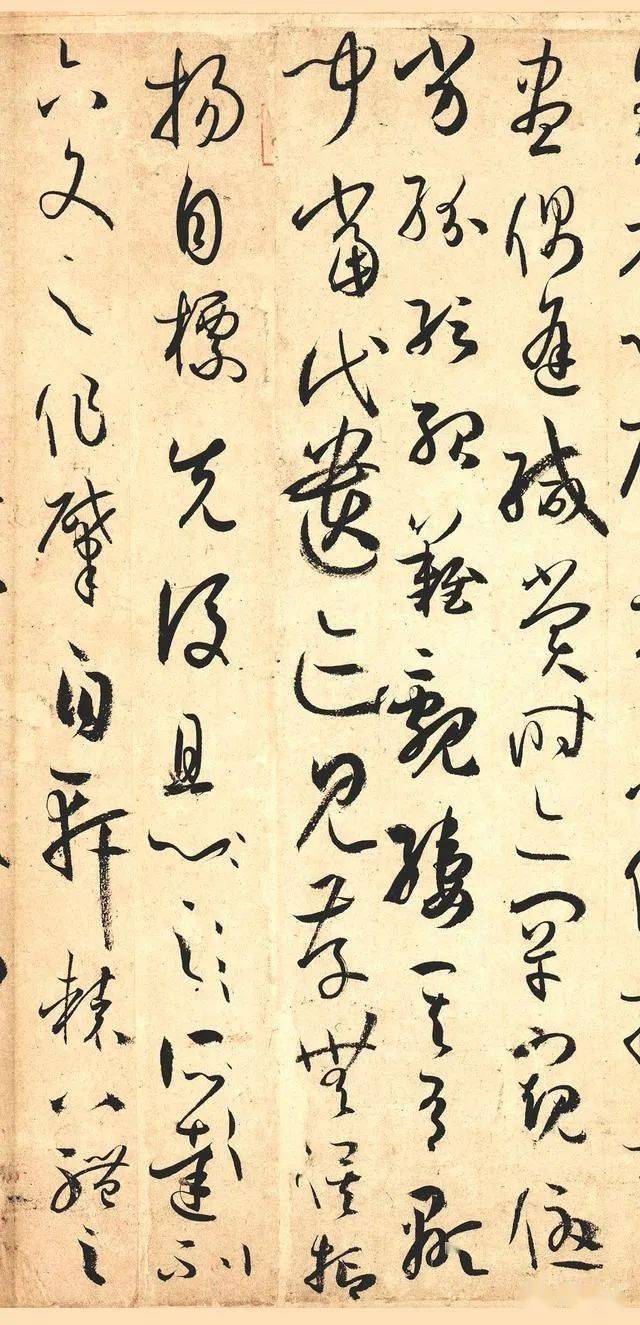 盡偶逢緘賞時亡罕窺優
劣紛紜殆難覼縷其有顯
聞當代遺迹見存無俟抑
揚自標先後且心之所達不
六文之作肇自軒轅八體之